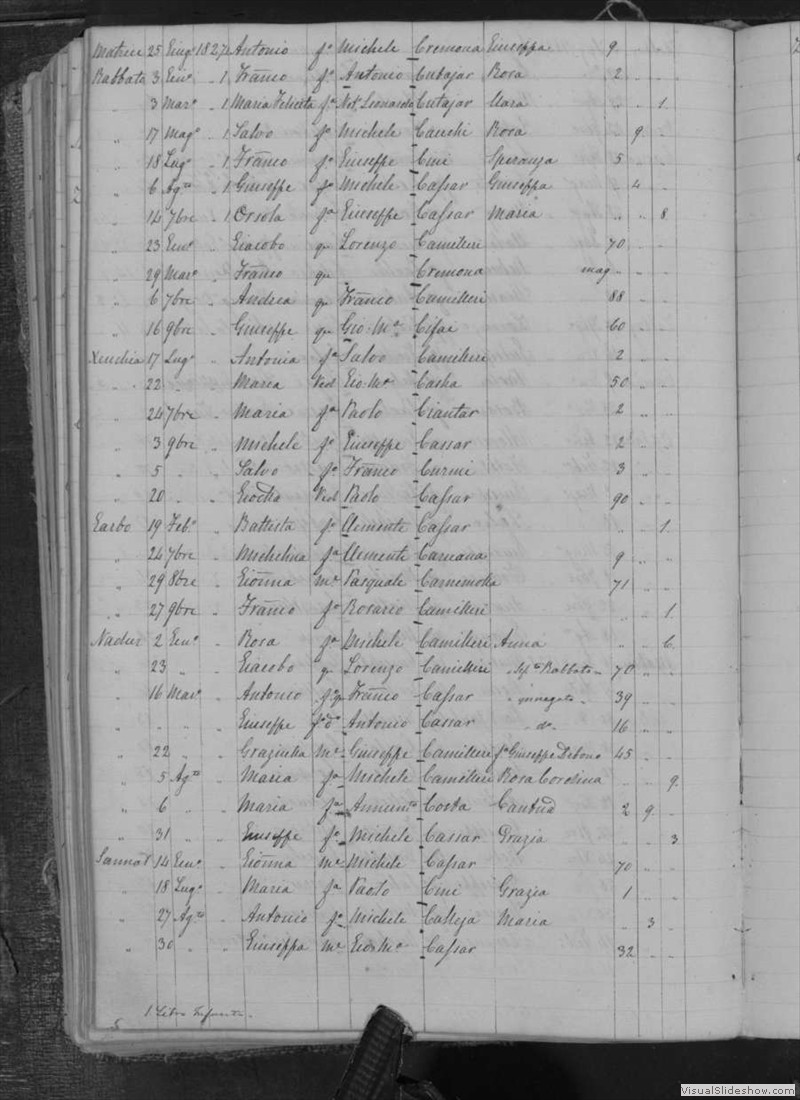 Matrice 25 Giug° 1827 Antonio f° Michele Cremona Giuseppa 9 " "
Rabbato 3 Gen° " 1 Franco f° Antonio Cutajar Rosa 2 " "
" 3 Mar° " 1 Maria Felicita fa Not° Leonardo Cutajar Clara " " 1
" 17 Mag° " 1 Salvo f° Michele Cauchi Rosa " 9 "
" 18 Lug° " 1 Franco f° Giuseppe Cini Speranza 5 " "
" 6 Ag° " 1 Giuseppe f° Michele Cassar Giuseppa 2 4 "
" 14 7bre " 1 Orsola fa Giuseppe Cassar Maria " " 8
" 23 Gen° " Giacobo qm Lorenzo Camilleri 70 " "
" 29 Mar° " Franco qm Cremona mag " "
" 6 7bre " Andrea qm Franco Camilleri 88 " "
" 16 9bre " Giuseppe qm Gio: Ma 60 " "
Xeuchia 17 Lug° " Antonia fa Salvo Camilleri 2 " "
" 22 " Maria Ved Gio: Ma Casha 50 " "
" 24 7bre " Maria fa Paolo Ciantar 2 " "
" 3 9bre " Michele f° Giuseppe Cassar 2 " "
" 5 " " Salvo f° Franco Curmi 3 " "
" 20 " " Ved Paolo Cassar 90 " "
Garbo 19 Feb° " Battista f° Clemente Cassar " " 1
" 24 7bre " Michelina fa Clemente Caruana 9 " "
" 29 8bre " Gionna me Pasquale 71 " "
" 27 9bre " Franco f° Rosario Camilleri " " 1
Nadur 2 Gen° " Rosa fa Michele Camilleri Anna " " 6
" 23 " " Giacobo qm Lorenzo Camilleri Rabbato 70 " "
" 16 Mar° " Antonio f° qm Franco Cassar annegato 39 " "
" " " Giuseppe f° do Antonio Cassar do 16 " "
" 22 " " Graziulla me Giuseppe Camilleri fa Giuseppe Debono 45 " "
" 5 Ag° " Maria fa Michele Camilleri Rosa Corolina " " 9
" 6 " " Maria fa Annunto Costa 2 9 "
" 31 " " Giuseppe f° Michele Cassar Grazia " " 3
Sannat 14 Gen° " Gionna me Michele Cassar 70 " "
" 18 Lug° " Maria fa Paolo Cini Grazia 1 " "
" 27 Ag° " Antonio f° Michele Calleja Maria " 3 "
" 30 " " Giuseppa me Gio: Ma Cassar 32 " "
1 Libro
VisualSlideshow.com